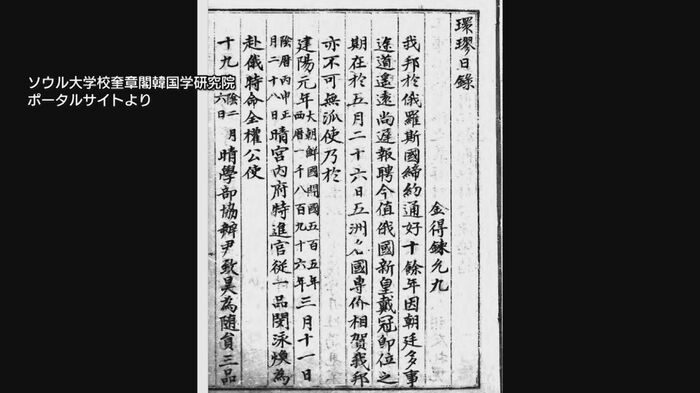 ソウル大学校奎章閣韓国学研究院
ポータルサイトより
環璆日錄
金得鍊允九
我邦於俄羅斯國締約通好十餘年因朝廷多事
途道遙遠尚遲報聘今值俄國新皇戴冠即位之
期在於五月二十六日五洲各國專价相賀我邦
亦不可無派使乃於
建陽元年大朝鮮國開國五百五年西曆一千八百九十六年三月十一日
陰曆丙申正月二十八日晴宮內府特進官從一品閔泳煥為
赴俄特命全權公使
十九陰二月六日晴學部協辦尹致昊為隨員三品